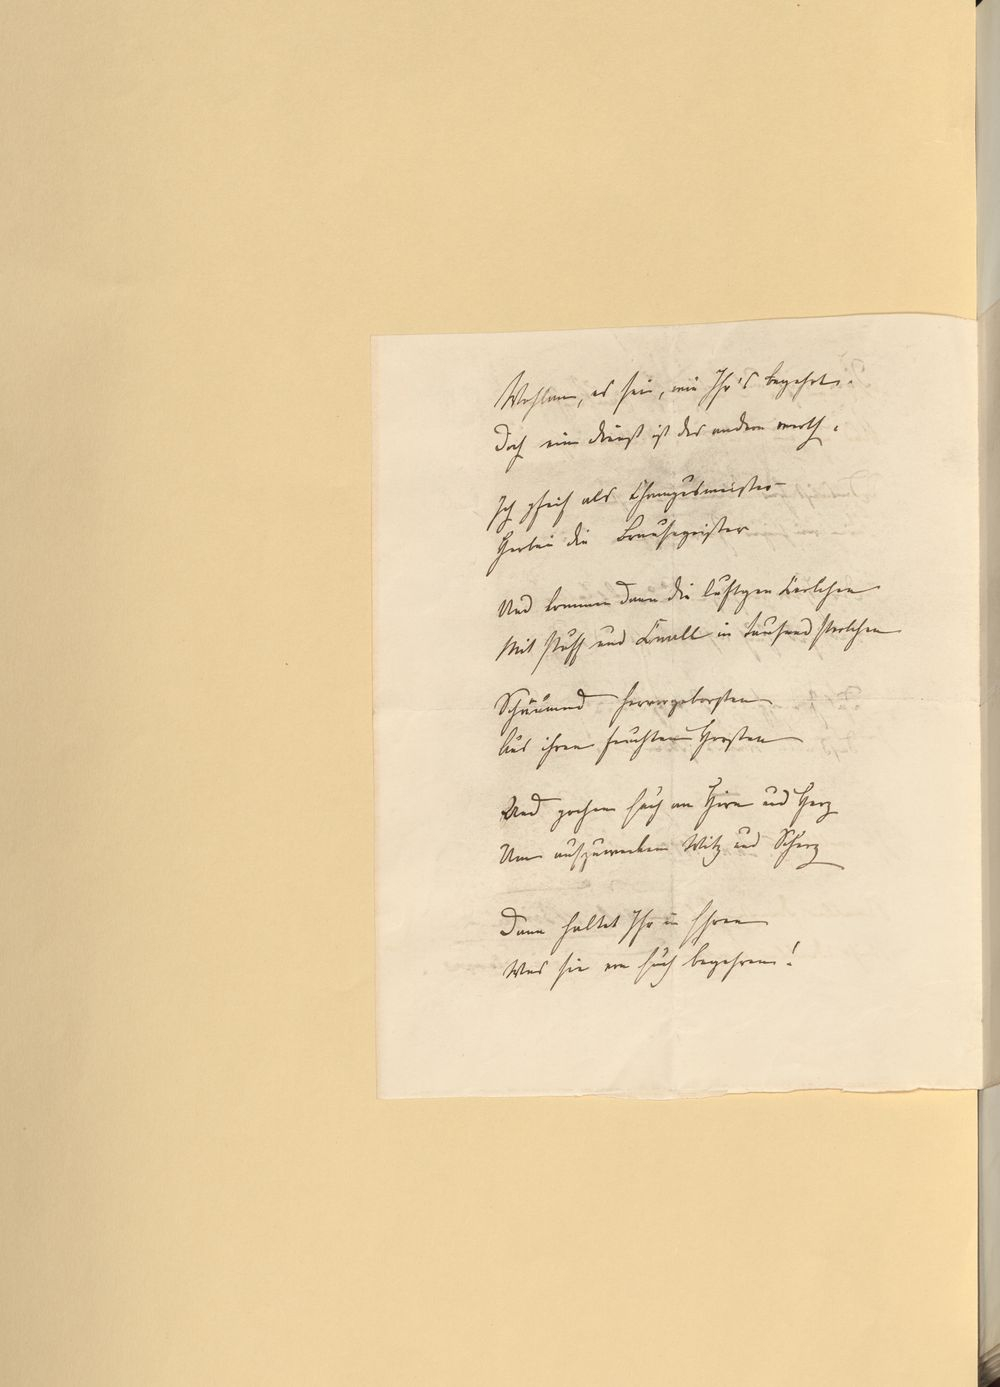 Wohlan, es sei, wie Ihr's begehrt.
Doch ein Dienst ist des andern werth.
Ich pfeif als Champusmeister
Herbei die Brausegeister
Und kommen dann die luftgen Kerlchen
Mit Puff und Knall in tausend Perlchen
Schäumend hervorgeborsten
Aus ihren feuchten Horsten
Und pochen Euch an Hirn und Herz
Um aufzuwecken Witz und Scherz
Dann haltet Ihr in Ehren
Was sie von Euch begehren!